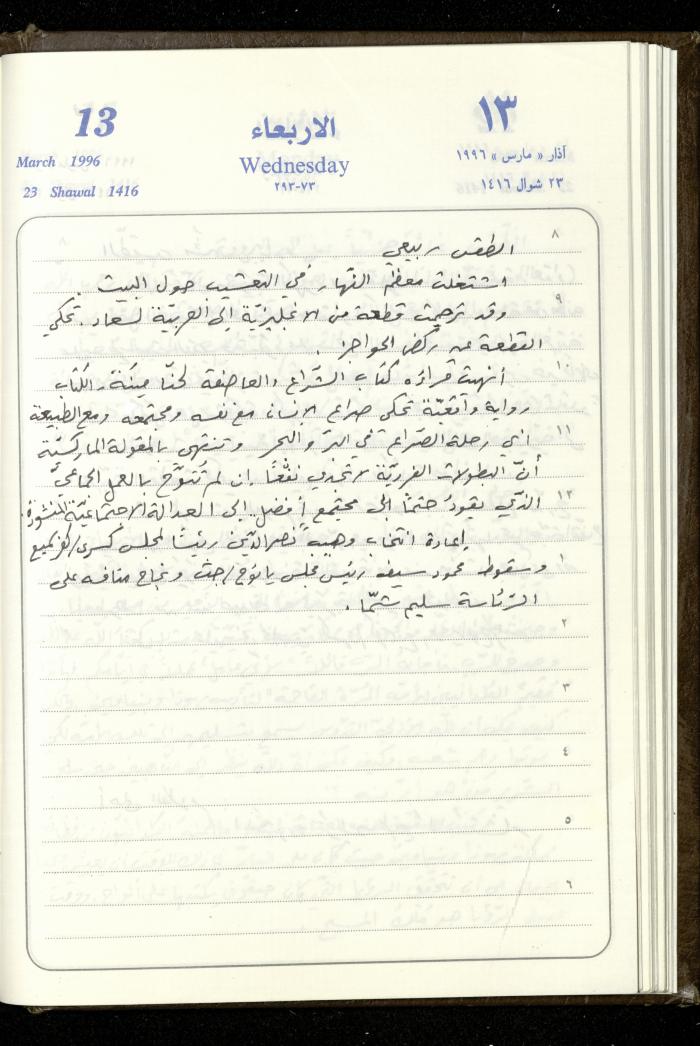 13
March 1996
23 Shawal 1416
الاربعاء
Wednesday
٧٣-٢٩٣
١٣
آذار « مارس » ١٩٩٦
٢٣ شوال ١٤١٦
٨
الطقس ربيعي
اشتغلت معظم النّهار في التعشيب حول البيت .
٩
وقد ترجمت قطعة من الانجليزيّة إلى العربيّة لسعاد. تحكي
القطعة عن ركض الحواجز .
١٠
أنهيت قراءة كتاب الشّراع والعاصفة لحنّا مينة، الكتاب
رواية واقعيّة تحكي صراع الإنسان مع نفسه ومجتمعه ومع الطبيعة
١١
في رحلة الصّراع في البرّ والبحر وتنتهي بالمقولة الماركسيّة
أنّ البطولات الفرديّة لا تجدي نفعًا إن لم تُتوّج بالعمل الجماعيّ
١٢
الذي يقودُ حتمًا إلى مجتمع أفضل.. إلى العدالة الاجتماعيّة المنشودة.
إعادة انتخاب وهيب نصر الدّين رئيسًا لمجلس كسرى/كفرسميع
١
وسقوط محمود سيف رئيس مجلس يانوح/جث ونجاح منافسه على
الرّئاسة سليم شمّا .
٢
٣
٤
٥
٦